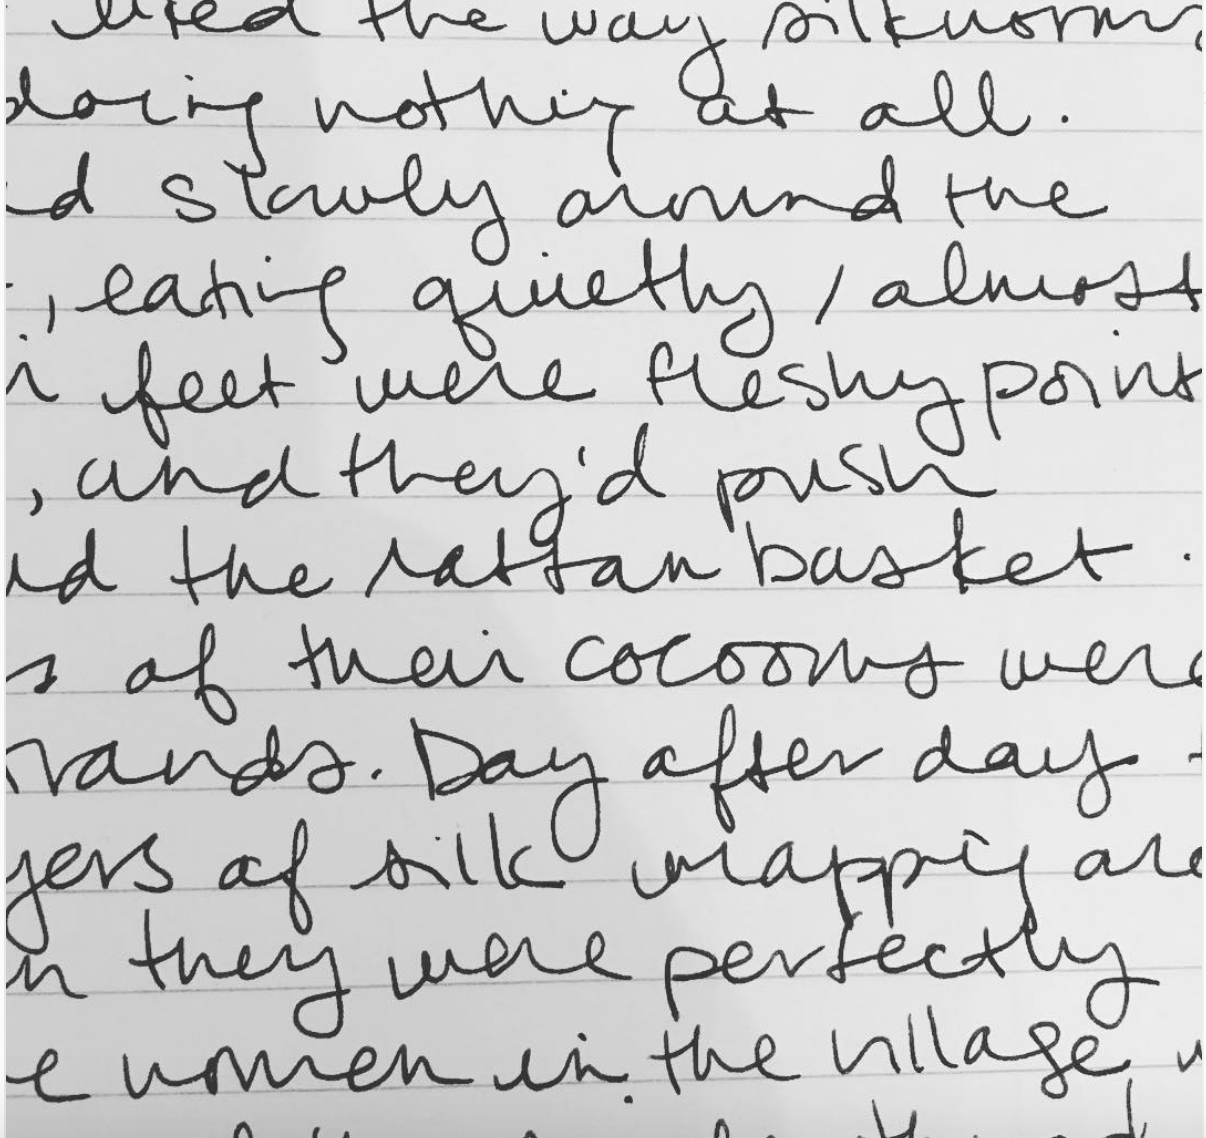 liked the way silkworms
doing nothing at all.
d slowly around the
, eating quietly, almost
r feet were fleshy point
, and they'd push
nd the rattan basket.
s of their cocoons were
rands. Day after day
yers of silk wrapping aro
n they were perfectly
e women in the village